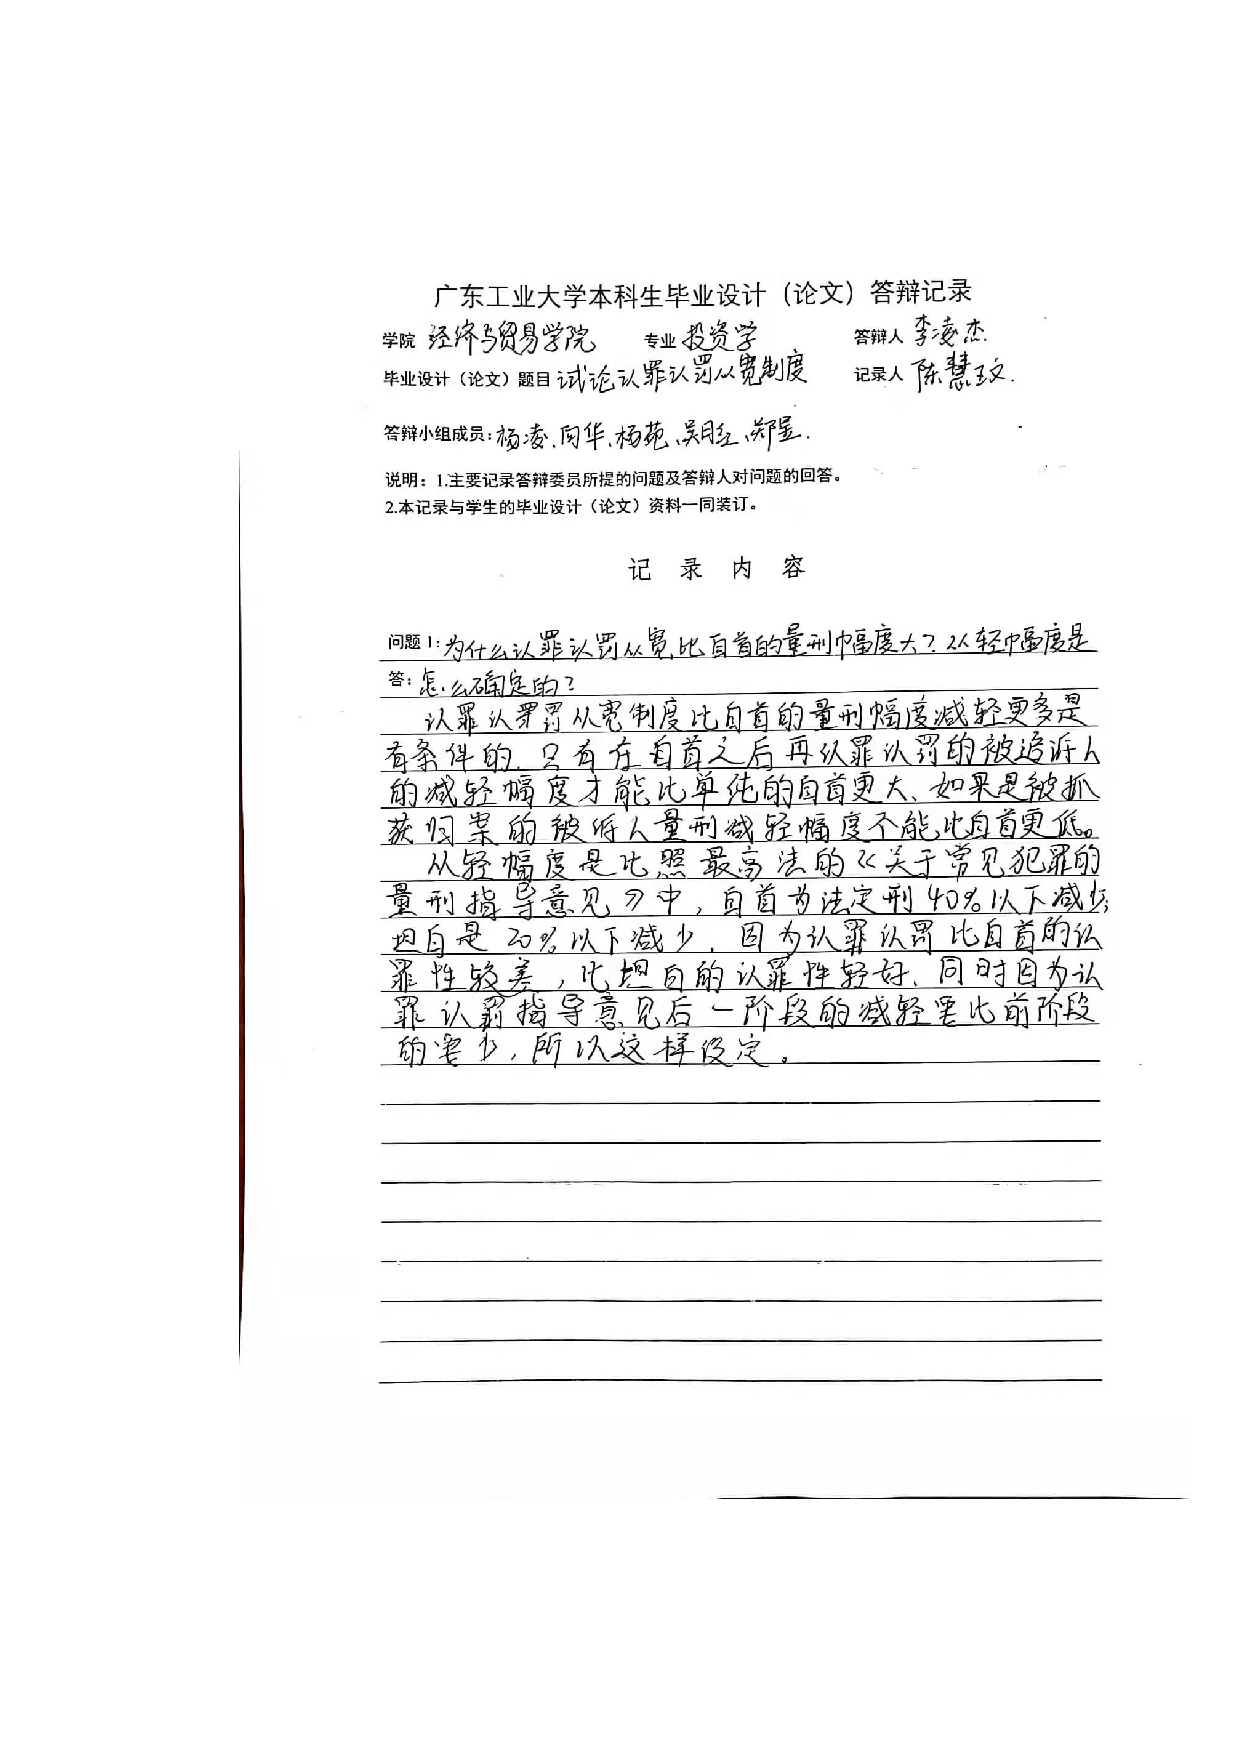 广东工业大学本科生毕业设计（论文）答辩记录
学院 经济与贸易学院 专业 投资学 答辩人 李凌杰
毕业设计（论文）题目 试论认罪认罚从宽制度 记录人 陈慧玟.
答辩小组成员:杨凌、闫华、杨苑、吴月红、郑昱.
说明：1.主要记录答辩委员所提的问题及答辩人对问题的回答。
2.本记录与学生的毕业设计（论文）资料一同装订。
记 录 内 容
问题 1: 为什么认罪认罚从宽比自首的量刑幅度大？从轻幅度是
答: 怎么确定的？
认罪认罚从宽制度比自首的量刑幅度减轻更多是
有条件的.只有在自首之后再认罪认罚的被追诉人
的减轻幅度才能比单纯的自首更大、如果是被抓
获归案的被诉人量刑减轻幅度不能比自首更低。
从轻幅度是比照最高法的《关于常见犯罪的
量刑指导意见》中，自首为法定刑40%以下减少;
坦白是20%以下减少，因为认罪认罚比自首的认
罪性较差，比坦白的认罪性较好、同时因为认
罪认罚指导意见后一阶段的减轻要比前阶段
的要少，所以这样设定。